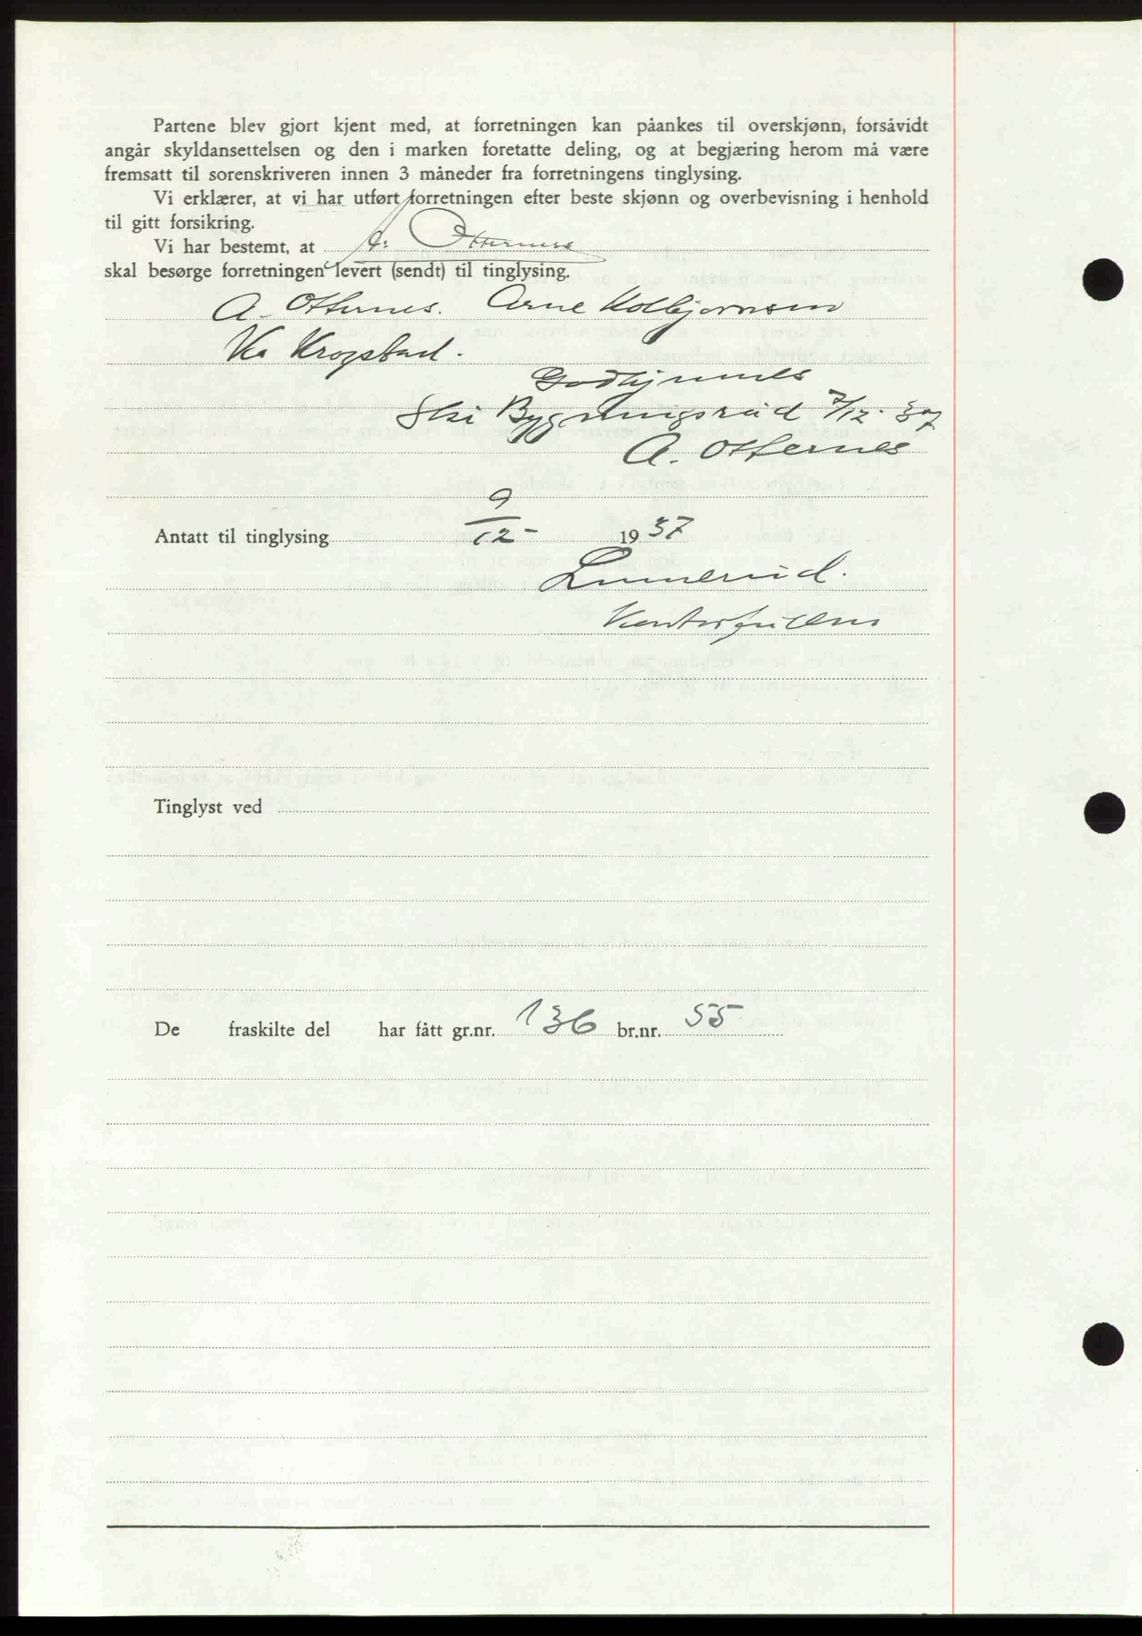 Partene blev gjort kjent med, at forretningen kan påankes til overskjønn, forsåvidt
angår skyldansettelsen og den i marken foretatte deling, og at begjæring herom må være
fremsatt til sorenskriveren innen 3 måneder fra forretningens tinglysing.
Vi erklærer, at vi har utført forretningen efter beste skjønn og overbevisning i henhold
til gitt forsikring.
Vi har bestemt, at A. Otternes
skal besørge forretningen levert (sendt) til tinglysing.
A. Otternes. Arne Kolbjørnsen
Kr Krogstad.
Godkjennes
Ski Bygningsråd 7/12. 37
A. Otternes
Antatt til tinglysing 9/12- 1937
Linnerud.
Tinglyst ved
De fraskilte del har fått gr.nr. 136 br.nr. 55